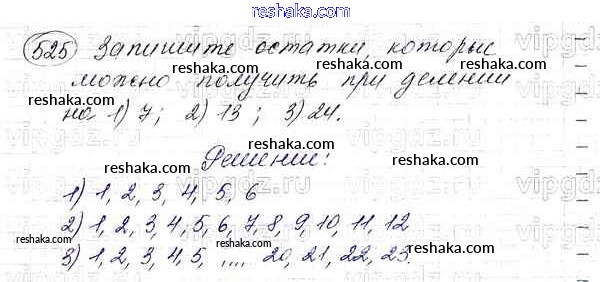 reshaka.com
525 Запишите остатки, которые
reshaka.com reshaka.com
можно получить при делении
на 1) 7; 2) 13; 3) 24.
reshaka.com reshaka.com
Решение:
reshaka.com
1) 1, 2, 3, 4, 5, 6
reshaka.com
2) 1, 2, 3, 4, 5, 6, 7, 8, 9, 10, 11, 12
reshaka.com reshaka.com
3) 1, 2, 3, 4, 5, ,,,, 20, 21, 22, 23.
reshaka.com